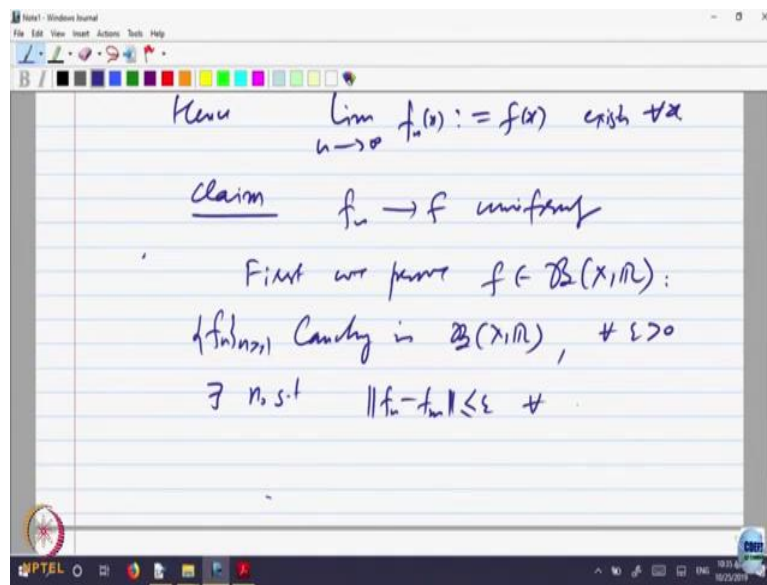 Note1 - Windows Journal
File Edit View Insert Actions Tools Help
B I
Hence lim f_n(x) := f(x) exists ∀x
n→∞
Claim f_n → f uniformly
First we prove f ∈ B(X,ℝ):
{f_n}n≥1 Cauchy in B(X,ℝ), ∀ ε>0
∃ n₀ s.t ‖f_n-f_m‖≤ε ∀
NPTEL
ENG
10/25/2019